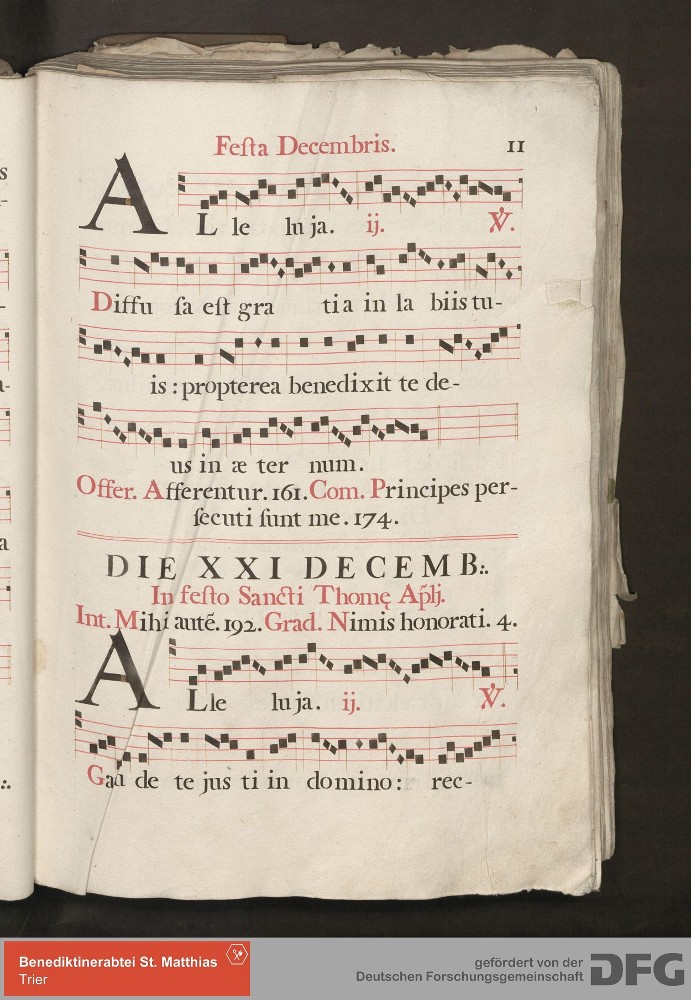 Festa Decembris. 11
AL le lu ja. ij. ℣.
Diffu sa est gra tia in la biis tu-
is : propterea benedixit te de-
us in æ ter num.
Offer. Afferentur. 161. Com. Principes per-
secuti sunt me. 174.
DIE XXI DECEMB:.
In festo Sancti Thomę Ap̃lj.
Int. Mihi autẽ. 192. Grad. Nimis honorati. 4.
ALle lu ja. ij. ℣.
Gau de te jus ti in domino: rec-
s
-
-
a-
a
:.
Benediktinerabtei St. Matthias
Trier
gefördert von der
Deutschen Forschungsgemeinschaft DFG